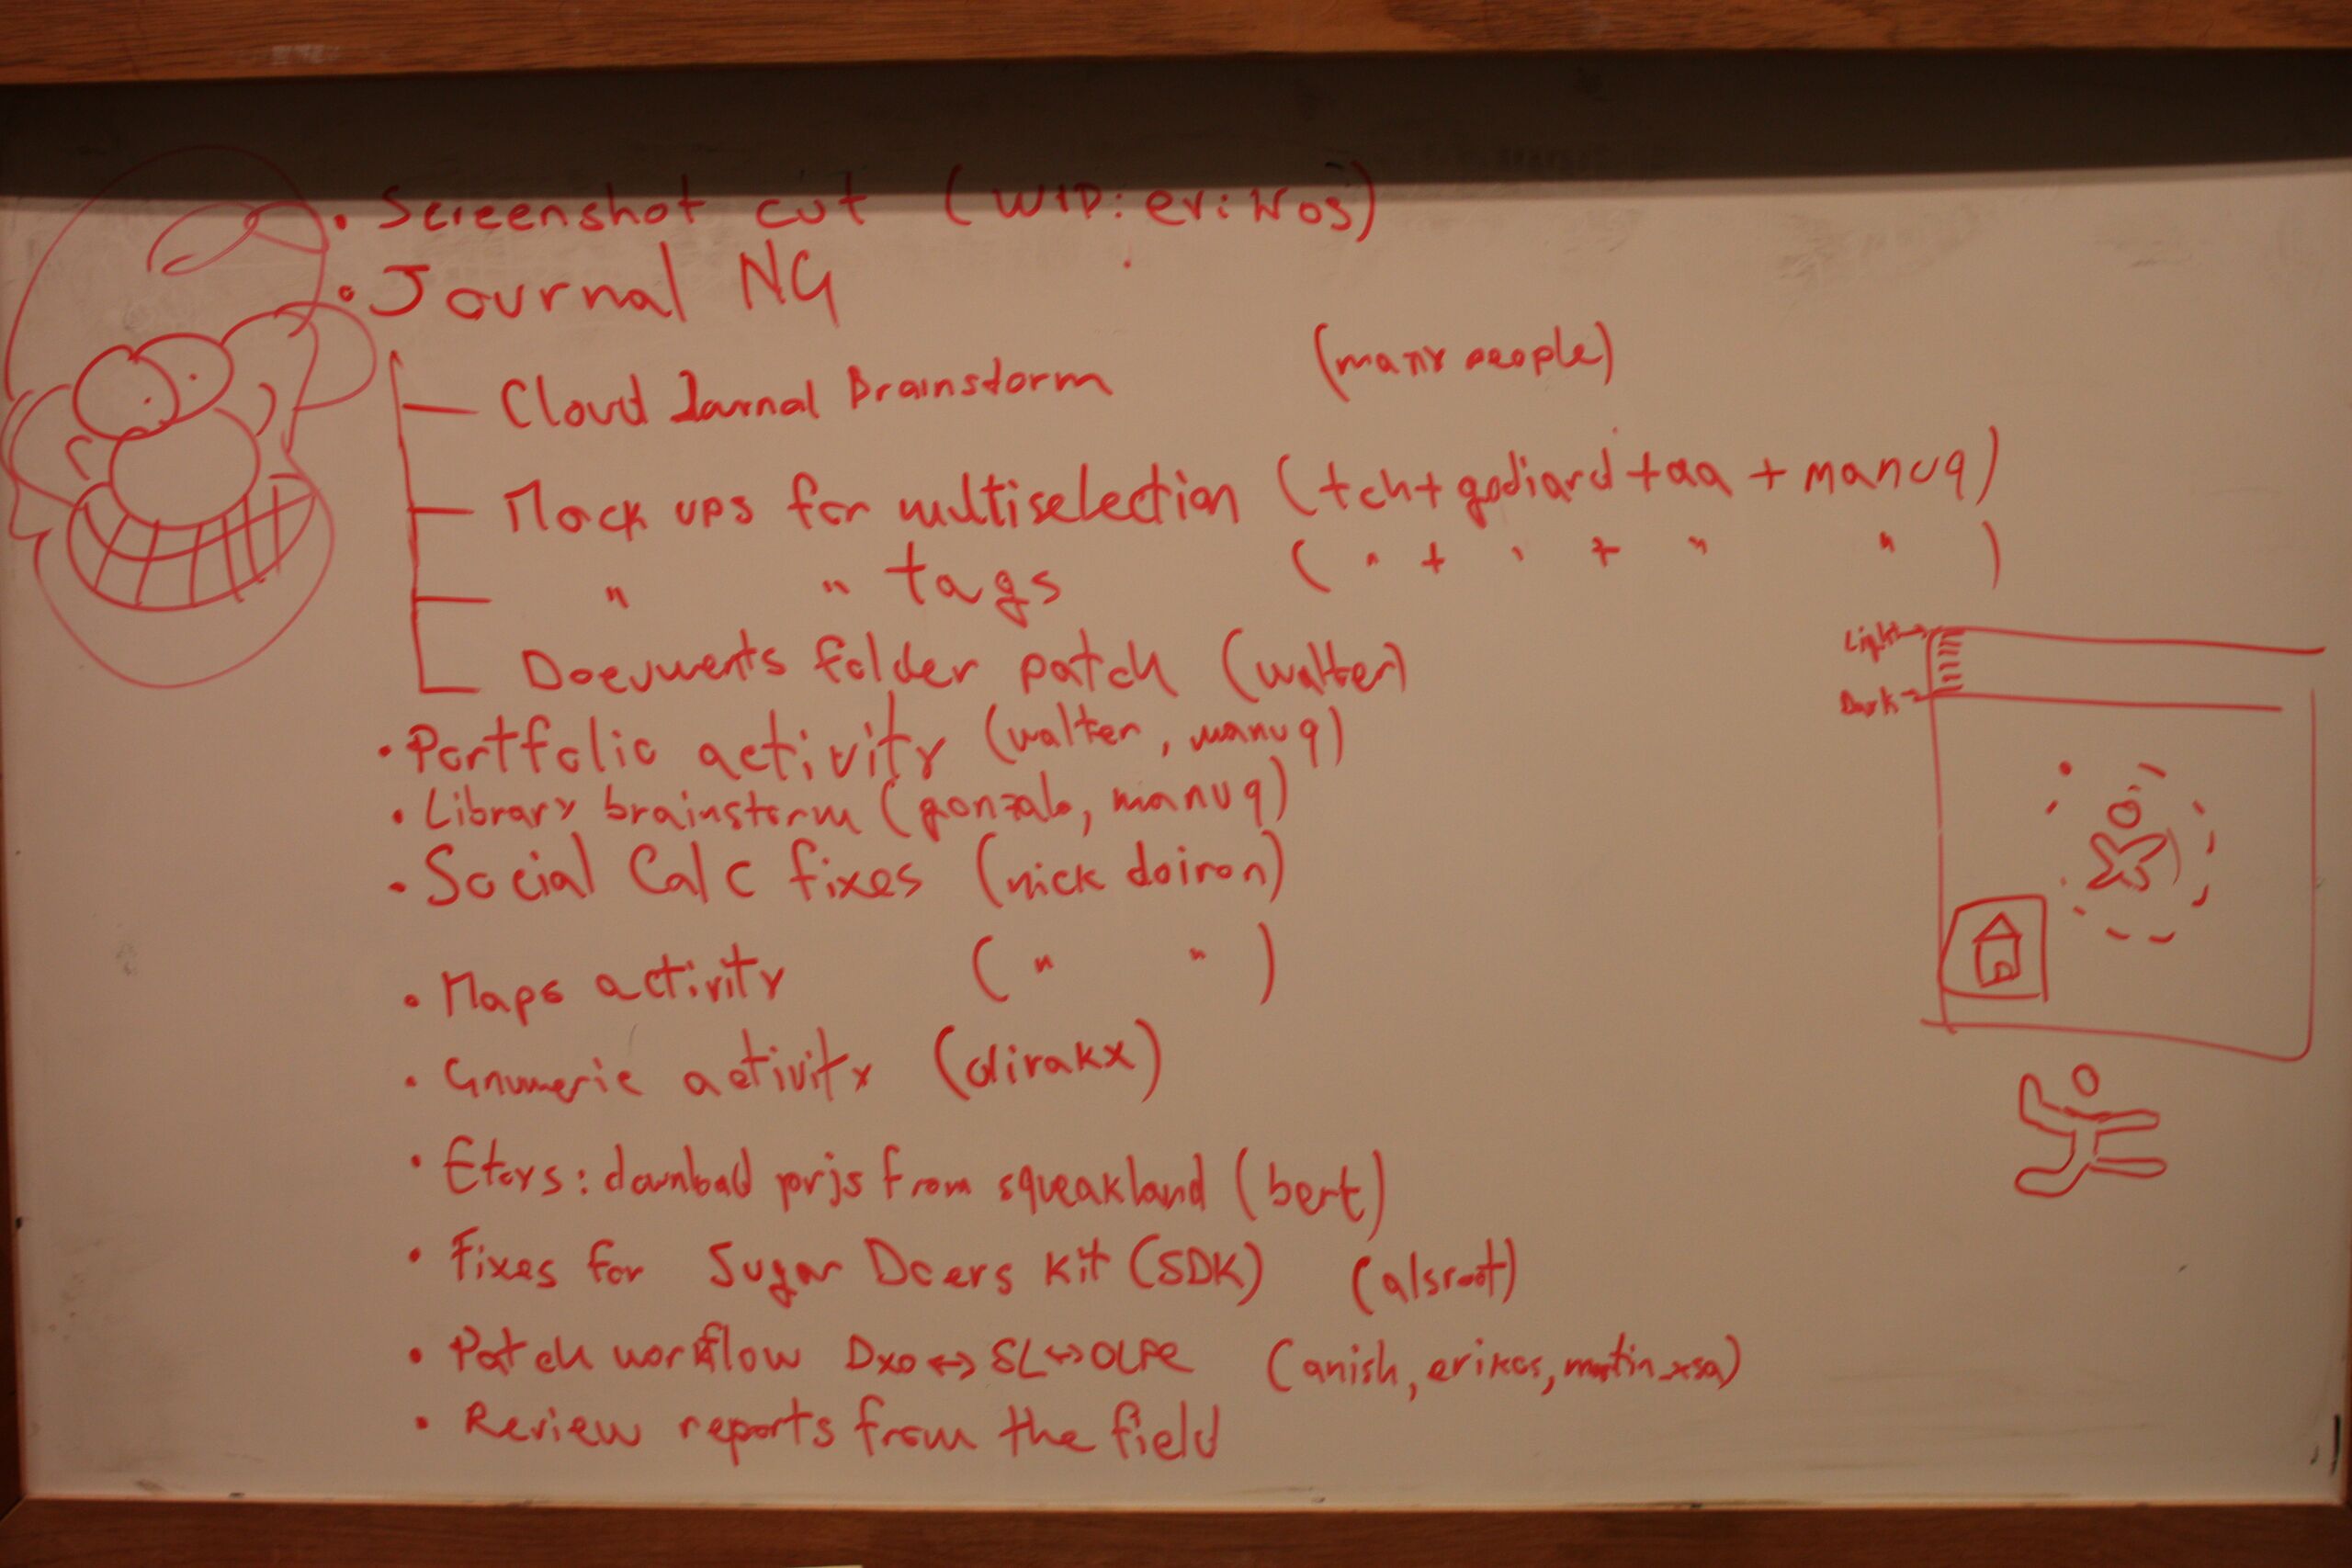 • Screenshot cut (WIP: erikos)
• Journal NG
— Cloud Journal Brainstorm (many people)
— Mock ups for multiselection (tch+godiard+aa+manuq)
— " " tags (" + " + " " )
— Documents folder patch (walter)
Light→
Dark→
• Portfolio activity (walter, manuq)
• Library brainstorm (gonzalo, manuq)
• Social Calc fixes (nick doiron)
• Maps activity (" ")
• Gnumeric activity (dirakx)
• Etoys: download prjs from squeakland (bert)
• Fixes for Sugar Doers Kit (SDK) (alsroot)
• Patch workflow Dxo↔SL↔OLPC (anish, erikos, martin_xsa)
• Review reports from the field